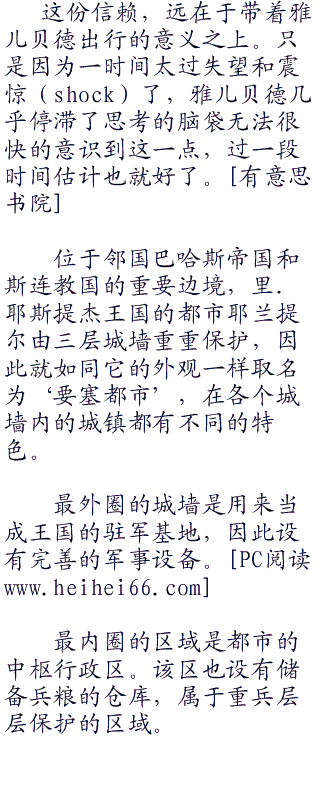 这份信赖，远在于带着雅
儿贝德出行的意义之上。只
是因为一时间太过失望和震
惊（shock）了，雅儿贝德几
乎停滞了思考的脑袋无法很
快的意识到这一点，过一段
时间估计也就好了。[有意思
书院]
位于邻国巴哈斯帝国和
斯连教国的重要边境，里．
耶斯提杰王国的都市耶兰提
尔由三层城墙重重保护，因
此就如同它的外观一样取名
为‘要塞都市’，在各个城
墙内的城镇都有不同的特
色。
最外圈的城墙是用来当
成王国的驻军基地，因此设
有完善的军事设备。[PC阅读
www.heihei66.com]
最内圈的区域是都市的
中枢行政区。该区也设有储
备兵粮的仓库，属于重兵层
层保护的区域。